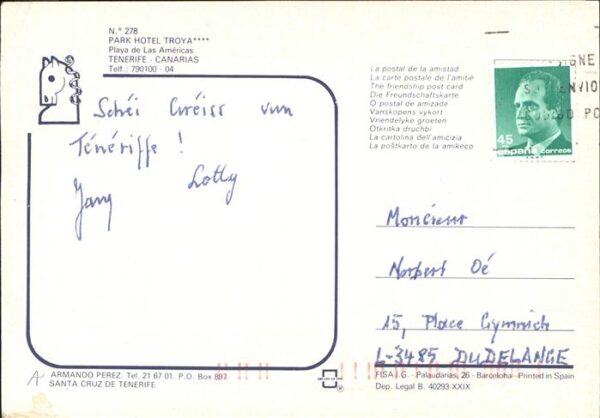 N.° 278
PARK HOTEL TROYA****
Playa de Las Américas
TENERIFE - CANARIAS
Telf.: 790100 - 04
Schéi Gréiss vun
Ténériffe !
Lotty
La postal de la amistad
La carte postale de l'amitié
The friendship post card
Die Freundschaftskarte
O postal de amizade
Vanskopens vykort
Vriendelyke groeten
Otkritka druchbi
La cartolina dell'amicizia
La poštkarto de la amikeco
45
españa correos
Moncieur
Norbert Oé
15, Place Gymnich
L-3485 DUDELANGE
ARMANDO PEREZ. Tel. 21 67 01. P.O. Box 897
SANTA CRUZ DE TENERIFE
FISA I.G. - Palaudarias, 26 - Barcelona - Printed in Spain
Dep. Legal B. 40293-XXIX